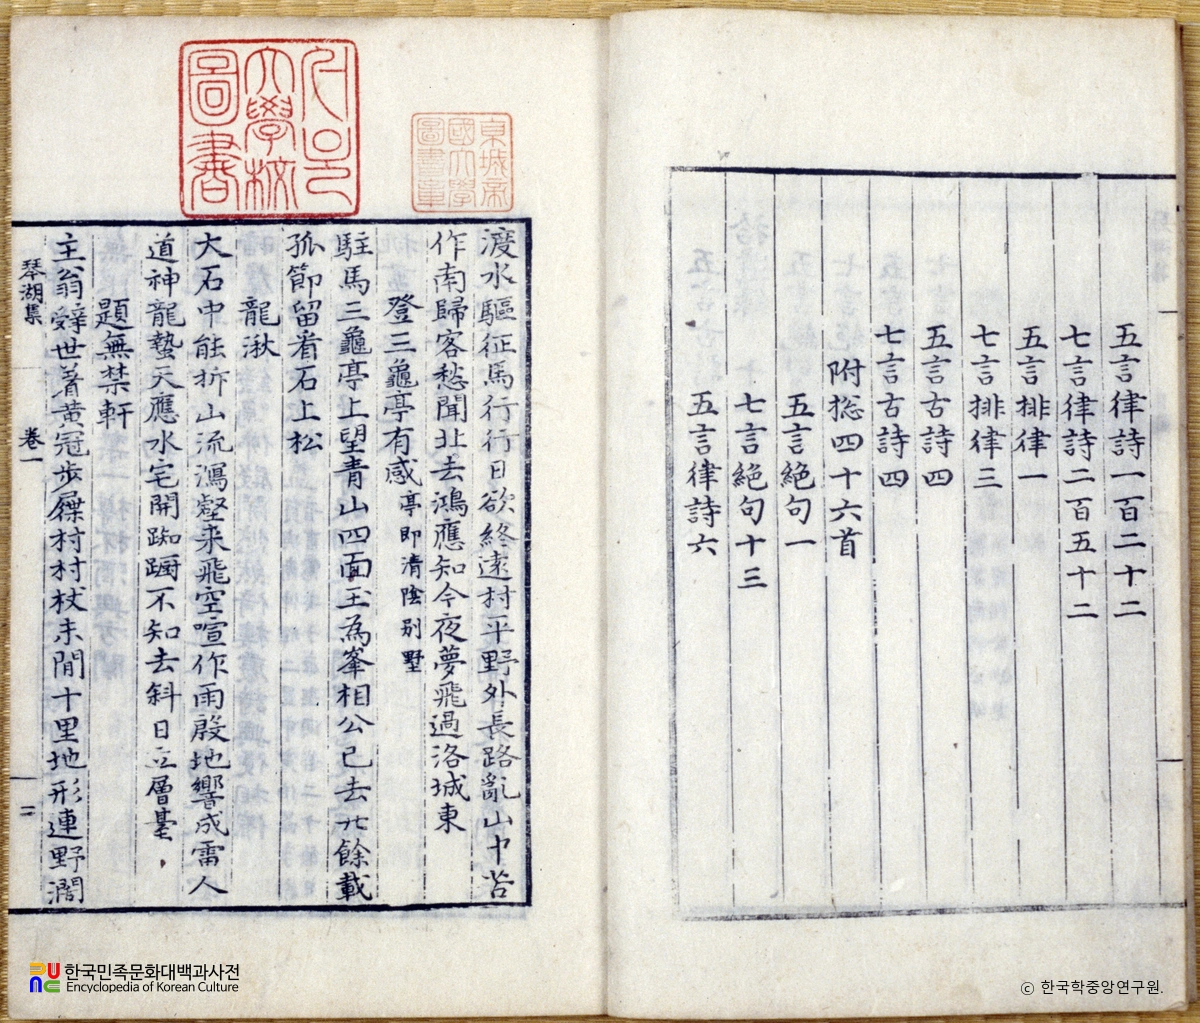 五言律詩一百二十二
七言律詩二百五十二
五言排律一
七言排律三
五言古詩四
七言古詩四
附捴四十六首
五言絶句一
七言絶句十三
五言律詩六
京城帝
國大學
圖書章
서울
大學校
圖書
渡水驅征馬行行日欲終遠村平野外長路亂山中苦
作南歸客愁聞北去鴻應知今夜夢飛過洛城東
登三龜亭有感 亭即清陰别墅
駐馬三龜亭上望青山四面玉為峯相公已去廿餘載
孤節留看石上松
龍湫
大石中能折山流瀉壑来飛空喧作雨殷地響成雷人
道神龍蟄天應水宅開踟蹰不知去斜日立層臺
題無禁軒
主翁辞世着黄冠步屧村村杖未閒十里地形連野濶
琴湖集
卷一
二
한국민족문화대백과사전
Encyclopedia of Korean Culture
ⓒ 한국학중앙연구원.